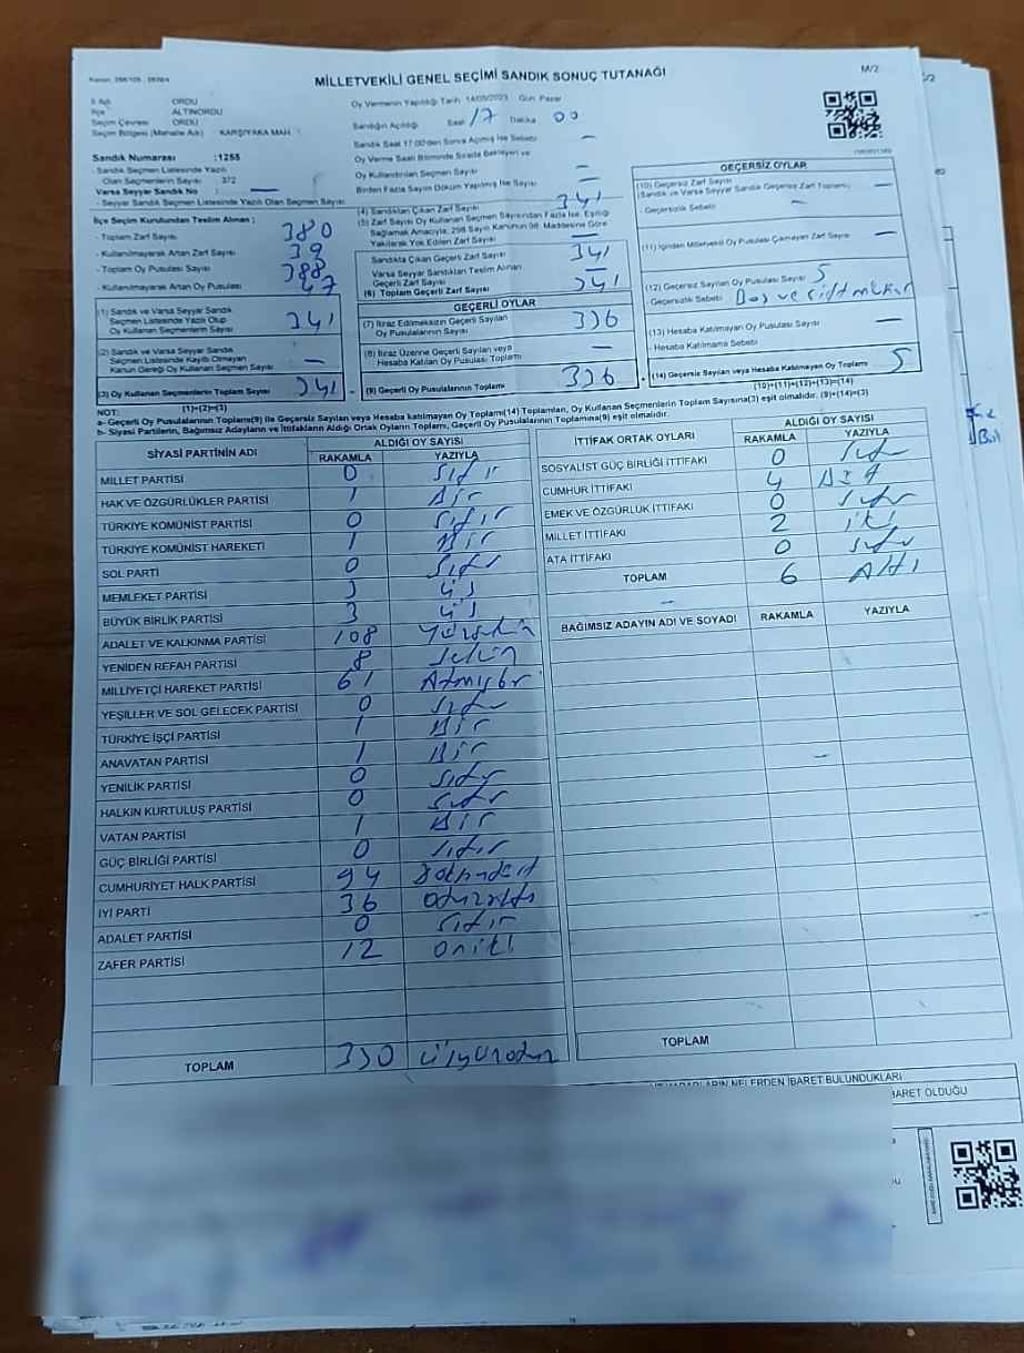 M/2
MİLLETVEKİLİ GENEL SEÇİMİ SANDIK SONUÇ TUTANAĞI
İl Adı : ORDU
İlçe : ALTINORDU
Seçim Çevresi : ORDU
Seçim Bölgesi (Mahalle Adı) : KARŞIYAKA MAH.
Oy Vermenin Yapıldığı Tarih: 14/05/2023 Gün: Pazar
Sandığın Açıldığı Saat 17 Dakika 00
Sandık Saat 17.00'den Sonra Açılmış İse Sebebi —
Oy Verme Saati Bitiminde Sırada Bekleyen ve
Oy Kullandırılan Seçmen Sayısı —
Birden Fazla Sayım Döküm Yapılmış İse Sayısı —
Sandık Numarası :1255
- Sandık Seçmen Listesinde Yazılı
Olan Seçmenlerin Sayısı : 372
Varsa Seyyar Sandık No : —
- Seyyar Sandık Seçmen Listesinde Yazılı Olan Seçmen Sayısı:
İlçe Seçim Kurulundan Teslim Alınan ;
- Toplam Zarf Sayısı 380
- Kullanılmayarak Artan Zarf Sayısı 39
- Toplam Oy Pusulası Sayısı 388
- Kullanılmayarak Artan Oy Pusulası 47
(1) Sandık ve Varsa Seyyar Sandık
Seçmen Listesinde Yazılı Olup
Oy Kullanan Seçmenlerin Sayısı 341
(2) Sandık ve Varsa Seyyar Sandık
Seçmen Listesinde Kayıtlı Olmayan
Kanun Gereği Oy Kullanan Seçmen Sayısı —
(3) Oy Kullanan Seçmenlerin Toplam Sayısı 341
(1)+(2)=(3)
(4) Sandıktan Çıkan Zarf Sayısı 341
(5) Zarf Sayısı Oy Kullanan Seçmen Sayısından Fazla İse, Eşitliği
Sağlamak Amacıyla, 298 Sayılı Kanunun 98. Maddesine Göre
Yakılarak Yok Edilen Zarf Sayısı —
Sandıkta Çıkan Geçerli Zarf Sayısı 341
Varsa Seyyar Sandıktan Teslim Alınan
Geçerli Zarf Sayısı —
(6) Toplam Geçerli Zarf Sayısı 341
GEÇERLİ OYLAR
(7) İtiraz Edilmeksizin Geçerli Sayılan
Oy Pusulalarının Sayısı 336
(8) İtiraz Üzerine Geçerli Sayılan veya
Hesaba Katılan Oy Pusulası Toplamı —
(9) Geçerli Oy Pusulalarının Toplamı 336
GEÇERSİZ OYLAR
(10) Geçersiz Zarf Sayısı
(Sandık ve Varsa Seyyar Sandık Geçersiz Zarf Toplamı) —
- Geçersizlik Sebebi —
(11) İçinden Milletvekili Oy Pusulası Çıkmayan Zarf Sayısı —
(12) Geçersiz Sayılan Oy Pusulası Sayısı 5
- Geçersizlik Sebebi Boş ve çift mühür
(13) Hesaba Katılmayan Oy Pusulası Sayısı —
- Hesaba Katılmama Sebebi
(14) Geçersiz Sayılan veya Hesaba Katılmayan Oy Toplamı 5
(10)+(11)+(12)+(13)=(14)
NOT:
a- Geçerli Oy Pusulalarının Toplamı(9) ile Geçersiz Sayılan veya Hesaba katılmayan Oy Toplamı(14) Toplamları, Oy Kullanan Seçmenlerin Toplam Sayısına(3) eşit olmalıdır. (9)+(14)=(3)
b- Siyasi Partilerin, Bağımsız Adayların ve İttifakların Aldığı Ortak Oyların Toplamı, Geçerli Oy Pusulalarının Toplamına(9) eşit olmalıdır.
SİYASİ PARTİNİN ADI ALDIĞI OY SAYISI
RAKAMLA YAZIYLA
MİLLET PARTİSİ 0 Sıfır
HAK VE ÖZGÜRLÜKLER PARTİSİ 1 Bir
TÜRKİYE KOMÜNİST PARTİSİ 0 Sıfır
TÜRKİYE KOMÜNİST HAREKETİ 1 Bir
SOL PARTİ 0 Sıfır
MEMLEKET PARTİSİ 3 üç
BÜYÜK BİRLİK PARTİSİ 3 üç
ADALET VE KALKINMA PARTİSİ 108 Yüzsekiz
YENİDEN REFAH PARTİSİ 8 Sekiz
MİLLİYETÇİ HAREKET PARTİSİ 61 Atmışbir
YEŞİLLER VE SOL GELECEK PARTİSİ 0 Sıfır
TÜRKİYE İŞÇİ PARTİSİ 1 Bir
ANAVATAN PARTİSİ 1 Bir
YENİLİK PARTİSİ 0 Sıfır
HALKIN KURTULUŞ PARTİSİ 0 Sıfır
VATAN PARTİSİ 1 Bir
GÜÇ BİRLİĞİ PARTİSİ 0 Sıfır
CUMHURİYET HALK PARTİSİ 94
İYİ PARTİ 36 Otuzaltı
ADALET PARTİSİ 0 Sıfır
ZAFER PARTİSİ 12 Oniki
TOPLAM 330 üçyüzotuz
İTTİFAK ORTAK OYLARI ALDIĞI OY SAYISI
RAKAMLA YAZIYLA
SOSYALİST GÜÇ BİRLİĞİ İTTİFAKI 0 Sıfır
CUMHUR İTTİFAKI 4
EMEK VE ÖZGÜRLÜK İTTİFAKI 0 Sıfır
MİLLET İTTİFAKI 2 iki
ATA İTTİFAKI 0 Sıfır
TOPLAM 6 Altı
BAĞIMSIZ ADAYIN ADI VE SOYADI RAKAMLA YAZIYLA
TOPLAM
NELERDEN İBARET BULUNDUKLARI
BARET OLDUĞU